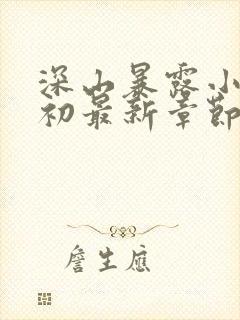 深山暴露小
初最新章節
詹生應